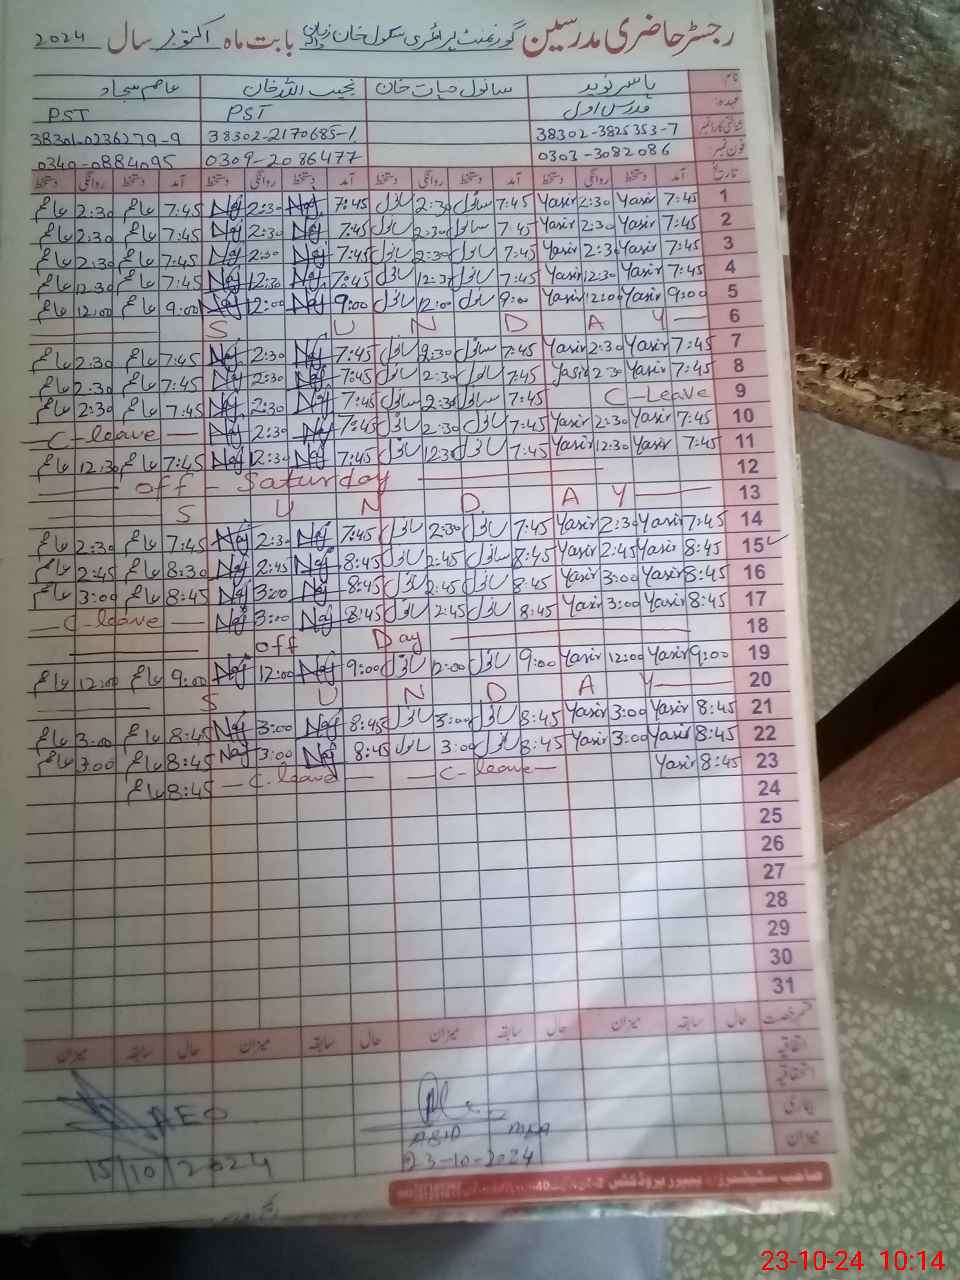 رجسٹر حاضری مدرسین گورنمنٹ پرائمری سکول خان بابت ماہ اکتوبر سال 2024
نام: یاسر نوید سانول حیات خان نجیب اللہ خان عاصم سجاد
عہدہ: مدرس اول PST PST
شناختی کارڈ نمبر 38302-3825353-7 38302-2170685-1 38301-0236279-9
فون نمبر 0303-3082086 0309-2086477 0340-0884095
تاریخ آمد دستخط روانگی دستخط آمد دستخط روانگی دستخط آمد دستخط روانگی دستخط آمد دستخط روانگی دستخط
1 7:45 Yasir 2:30 Yasir 7:45 سانول 2:30 سانول 7:45 Naj 2:30 Naj 7:45 عاصم 2:30 عاصم
2 7:45 Yasir 2:30 Yasir 7:45 سانول 2:30 سانول 7:45 Naj 2:30 Naj 7:45 عاصم 2:30 عاصم
3 7:45 Yasir 2:30 Yasir 7:45 سانول 2:30 سانول 7:45 Naj 2:30 Naj 7:45 عاصم 2:30 عاصم
4 7:45 Yasir 12:30 Yasir 7:45 سانول 12:30 سانول 7:45 Naj 12:30 Naj 7:45 عاصم 12:30 عاصم
5 9:00 Yasir 12:00 Yasir 9:00 سانول 12:00 سانول 9:00 Naj 12:00 Naj 9:00 عاصم 12:00 عاصم
6 S U N D A Y
7 7:45 Yasir 2:30 Yasir 7:45 سانول 2:30 سانول 7:45 Naj 2:30 Naj 7:45 عاصم 2:30 عاصم
8 7:45 Yasir 2:30 Yasir 7:45 سانول 2:30 سانول 7:45 Naj 2:30 Naj 7:45 عاصم 2:30 عاصم
9 C-Leave 7:45 سانول 2:30 سانول 7:45 Naj 2:30 Naj 7:45 عاصم 2:30 عاصم
10 7:45 Yasir 2:30 Yasir 7:45 سانول 2:30 سانول 7:45 Naj 2:30 Naj C-leave
11 7:45 Yasir 12:30 Yasir 7:45 سانول 12:30 سانول 7:45 Naj 12:30 Naj 7:45 عاصم 12:30 عاصم
12 off - Saturday
13 S U N D. A Y
14 7:45 Yasir 2:30 Yasir 7:45 سانول 2:30 سانول 7:45 Naj 2:30 Naj 7:45 عاصم 2:30 عاصم
15 8:45 Yasir 2:45 Yasir 8:45 سانول 2:45 سانول 8:45 Naj 2:45 Naj 8:30 عاصم 2:45 عاصم
16 8:45 Yasir 3:00 Yasir 8:45 سانول 2:45 سانول 8:45 Naj 3:00 Naj 8:45 عاصم 3:00 عاصم
17 8:45 Yasir 3:00 Yasir 8:45 سانول 2:45 سانول 8:45 Naj 3:00 Naj C-leave
18 off Day
19 9:00 Yasir 12:00 Yasir 9:00 سانول 12:00 سانول 9:00 Naj 12:00 Naj 9:00 عاصم 12:00 عاصم
20 S U N D A Y
21 8:45 Yasir 3:00 Yasir 8:45 سانول 3:00 سانول 8:45 Naj 3:00 Naj 8:45 عاصم 3:00 عاصم
22 8:45 Yasir 3:00 Yasir 8:45 سانول 3:00 سانول 8:45 Naj 3:00 Naj 8:45 عاصم 3:00 عاصم
23 8:45 Yasir C-leave C-leave 8:45 عاصم
24
25
26
27
28
29
30
31
قسم رخصت حال سابقہ میزان حال سابقہ میزان حال سابقہ میزان حال سابقہ میزان
اتفاقیہ
استحقاقیہ
بیماری
میزان
AEO
15/10/2024
23-10-2024
23-10-24 10:14